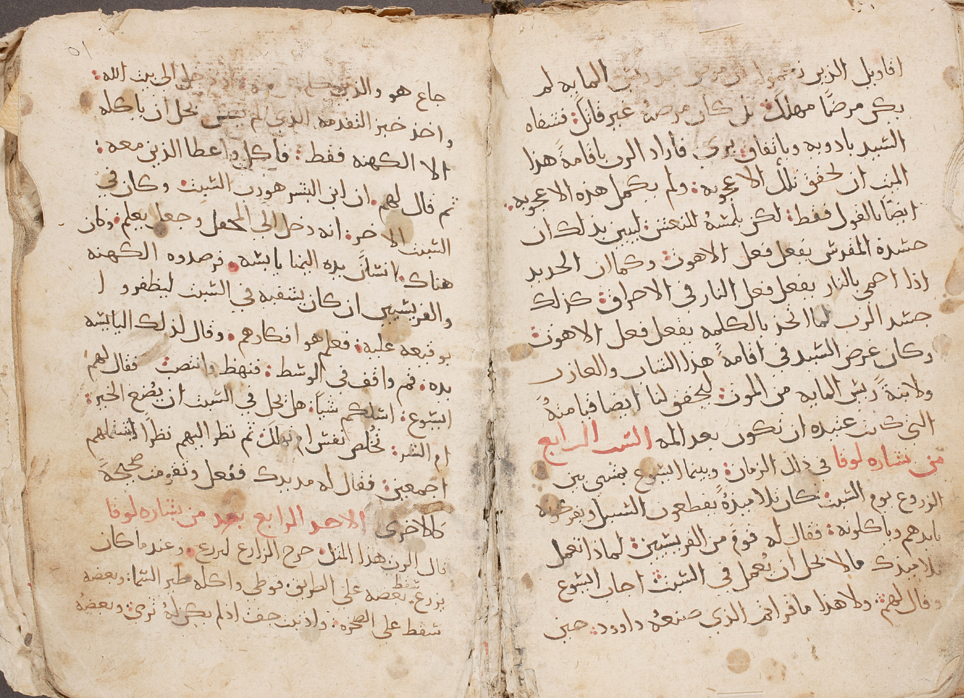 اقاويل الذين زعموا المايه لم
يكن مرضًا مهلك بل كان مرضه غير قاتل فشفاه
السيد بادويه وباتفاق بري فاراد الرب باقامة هذا
الميت ان يحقق تلك الاعجوبه ولم يكمل هذه الاعجوبه
ايضًا بالقول فقط لكن بلمسه للنعش ليبين بذلك ان
جسده المقدس يفعل فعل الاهوت وكما ان الحديد
اذا احمي بالنار يفعل فعل النار في الاحراق كذلك
جسد الرب لما اتحد بالكلمه يفعل فعل الاهوت
وكان غرض السيد في اقامة هذا الشاب والعازر
ولابنة ريس المايه من الموت ليحقق لنا ايضا قيامته
التي كانت عتيده ان تكون بعد المه السبت الرابع
من بشاره لوقا في ذلك الزمان وبينما ايسوع يمشي بين
الزروع يوم السبت كان تلاميذه يقطعون السبل ويفركونه
بايدهم وياكلونه فقال له قوم من الفريسيين لماذا تعمل
تلاميدك مالا يحل ان يعمل في السبت اجاب ايسوع
وقال لهم ولا هذا ماقراتم الذي صنعه داوود حين
٥١
جاع هو والذين دخل الى بيت الله
واخذ خبز التقدمه الذي لم يحل ان ياكله
الا الكهنه فقط فاكل واعطا الذين معه
ثم قال لهم ان ابن البشر هو رب السبت وكان في
السبت الاخر انه دخل الى المحفل وجعل يعلم وكان
هناك انسان يده اليمنا يابسه فرصدوه الكهنه
والفريسيين ان كان يشفيه في السبت ليظفروا
بوقيعه عليه فعلم هو افكارهم وقال لذلك اليابسه
يده قم واقف في الوسط فنهظ وانتصب فقال لهم
ايسوع اسلكم شيا هل يحل في السبت ان يصنع الخير
ام الشر تخلص نفس ام تهلك ثم نظر اليهم نظرا
اجمعين فقال له مد يدك ففعل وتقومت صحيحة
كالاخرى الاحد الرابع بعد من بشاره لوقا
قال الرب هذا المثل خرج الزارع ليزرع وعندما كان
يزرع سقط بعضه على الطريق فوطى واكله طير السما وبعضه
سقط على الصخره واذ نبت جف اذ لم يكن له ثرى وبعضه